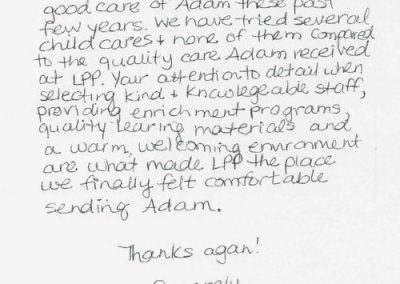 good care of Adam these past
few years. We have tried several
child cares + none of them compared
to the quality care Adam received
at LPP. Your attention to detail when
selecting kind + knowlegeable staff,
providing enrichment programs,
quality learing materials and
a warm, welcoming environment
are what made LPP the place
we finally felt comfortable
sending Adam.
Thanks agan!